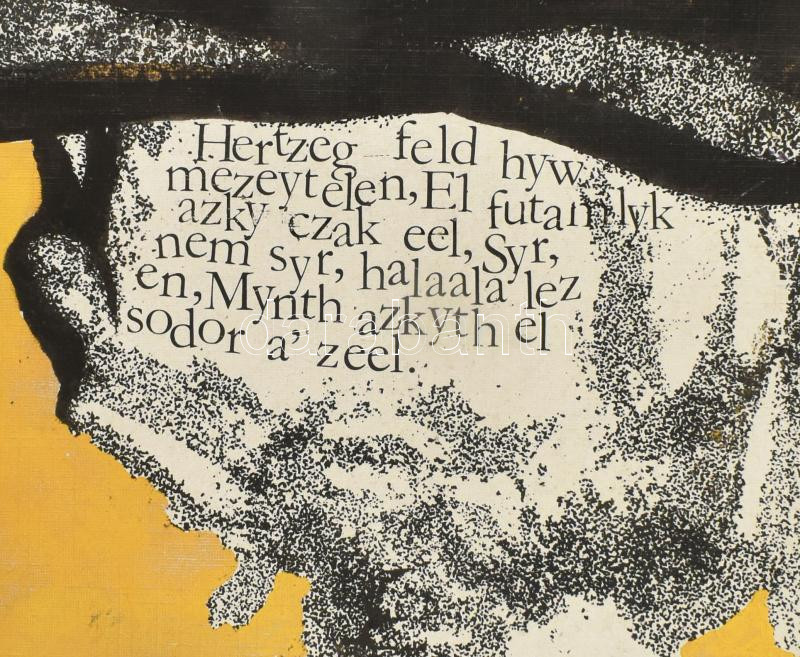 Hertzeg feld hyw
mezeytelen, El futamlyk
azky czak eel, Syr,
nem syr, halaala lez
en, Mynth azkyth el
sodor a' zeel.
darabanth